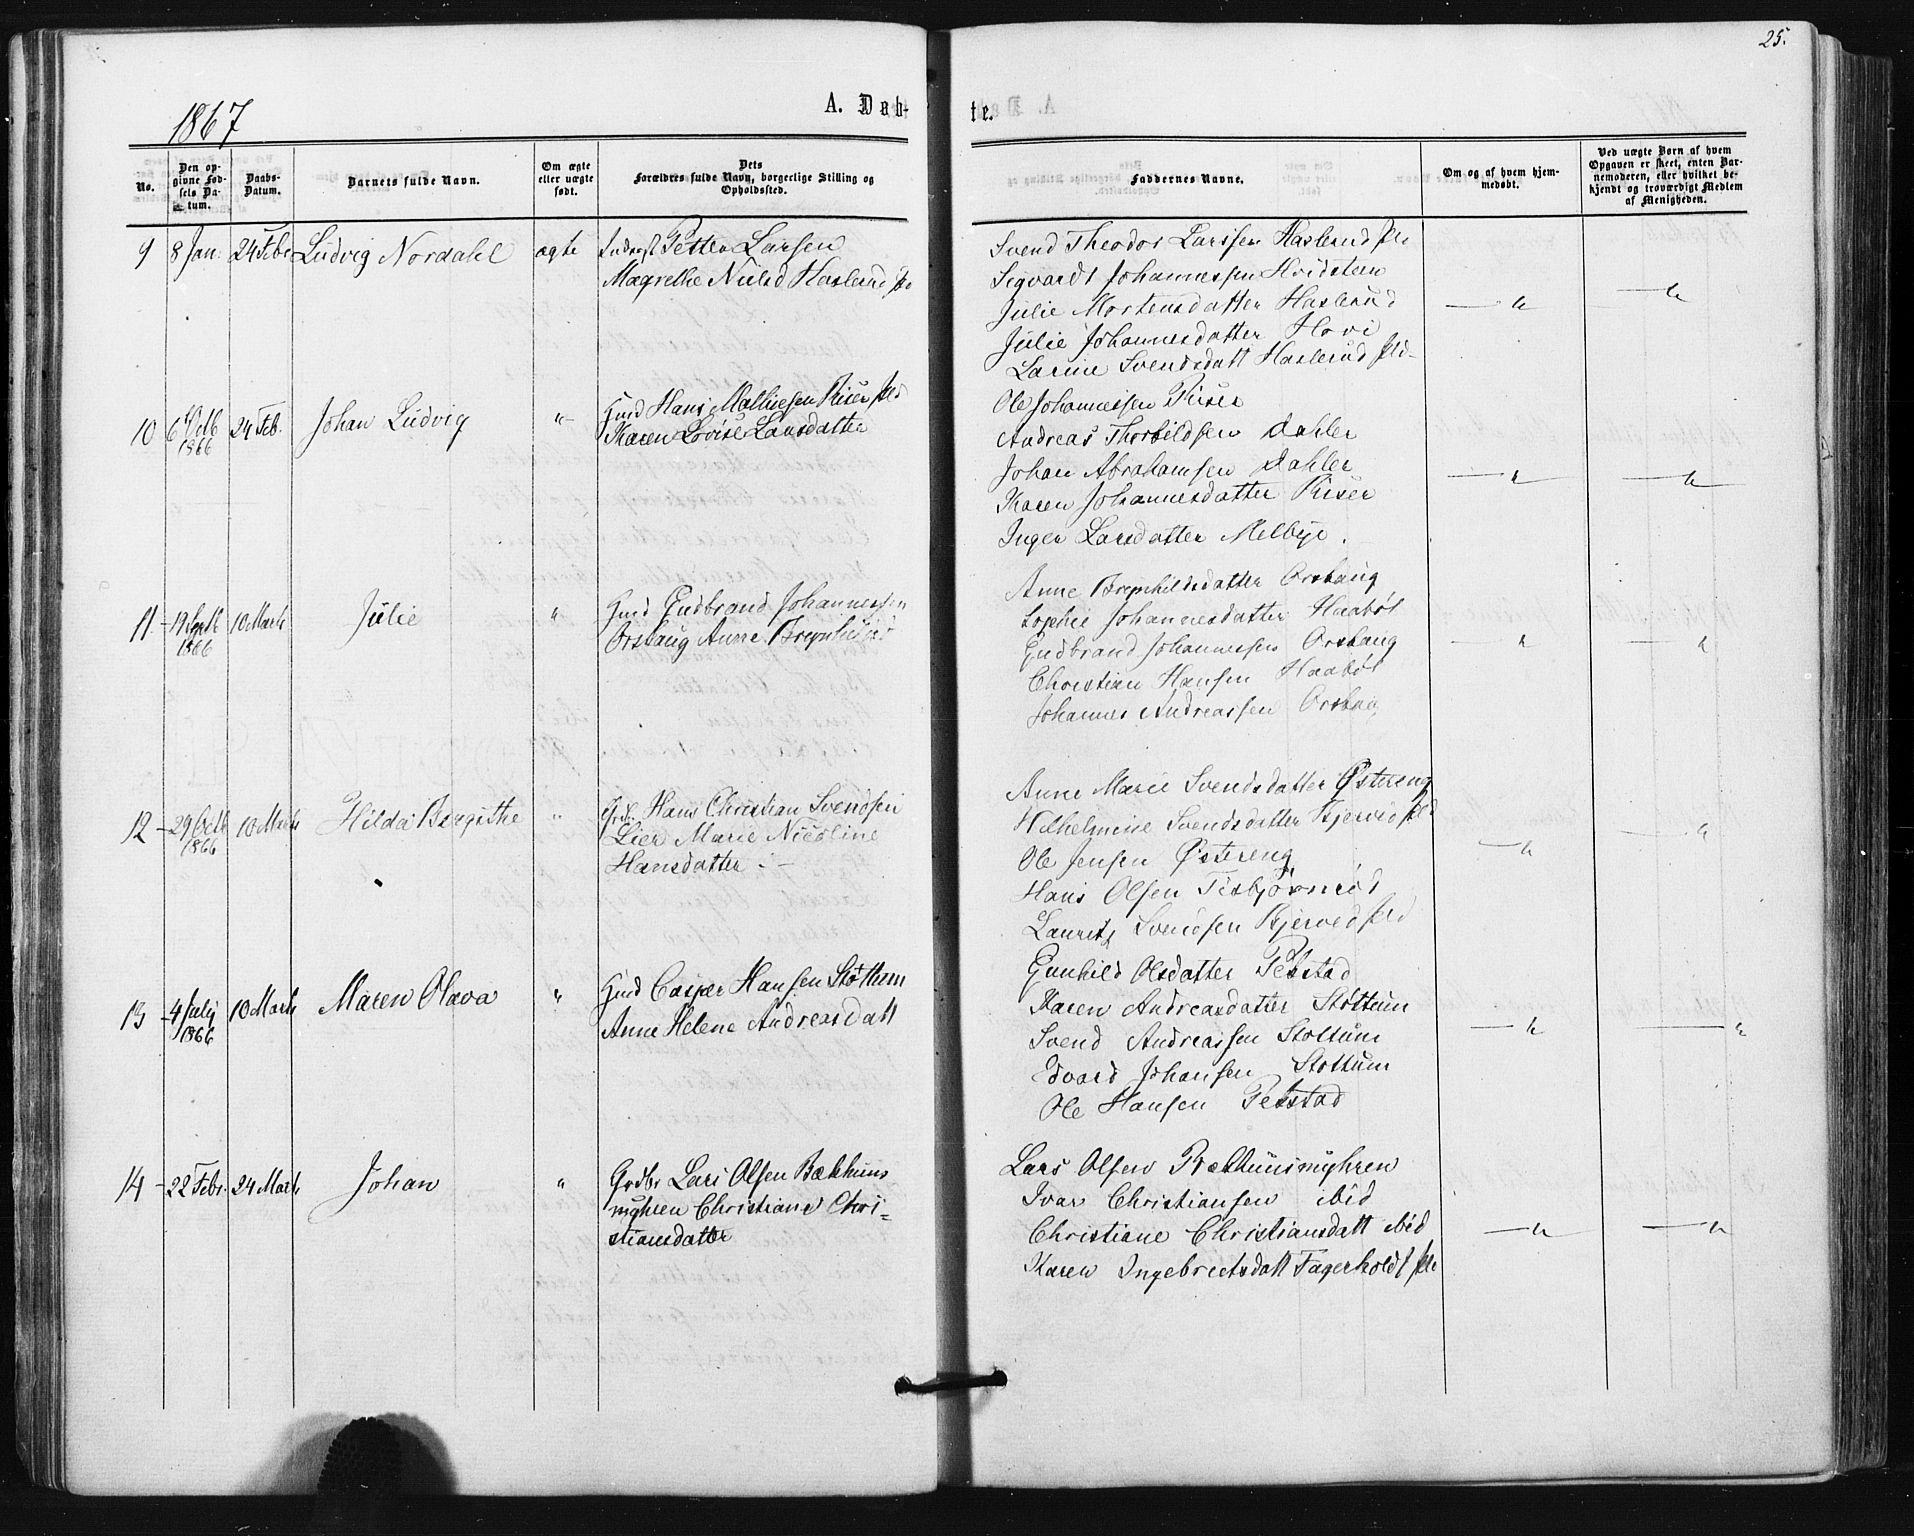 25.
1867
A. Døb-
te.
No.
Den op-
givne Fød-
sels Da-
tum.
Daabs-
Datum.
Barnets fulde Navn.
Om ægte
eller uægte
født.
Dets
Forældres fulde Navn, borgerlige Stilling og
Opholdssted.
Faddernes Navne.
Om og af hvem hjem-
medøbt.
Ved uægte Børn af hvem
Opgaven er skeet, enten Bar-
nemoderen, eller hvilket be-
kjendt og troværdigt Medlem
af Menigheden.
9 8 Jan. 24 Febr Ludvig Nordahl ægte Petter Larsen
Magrethe Nilsd Haslerud
Svend Theodor Larssen Haslerud
Sigvardt Johannessen Hvidsteen
Julie Mortensdatter Haslerud
Julie Johannesdatter Hovi
Larine Svendsdatt Haslerud
10 6 Octb 24 Feb. Johan Ludvig " Gmd Hans Mathiesen Riser
1866 Karen Lovise Larsdatter
Ole Johannessen Riser
Andreas Thorkildsen Dahler
Johan Abrahamsen Dahler
Karen Johannesdatter Riser
Inger Larsdatter Melbye.
11 19 Septb 10 Marts Julie " Gmd Gudbrand Johannessen
1866 Orsbaug Anne Brynhildsd
Anne Brynhildsdatter Orsbaug
Sophie Johannesdatter Haabøl
Gudbrand Johannessen Orsbaug
Christian Hansen Haabøl
Johannes Andreassen Orsbaug
12 29 Octb 10 Marts Hilda Birgithe " Grdbr Hans Christian Svendsen
1866 Lier Marie Nicoline
Hansdatter
Anne Marie Svendsdatter Østereng
Wilhelmine Svendsdatter Bjerved
Ole Jensen Østereng
Hans Olsen Tisbjørnrød
Lauritz Svendsen Bjerved
13 4 July 10 Marts Maren Olava " Gmd Casper Hansen Støttum
1866 Anne Helene Andreasdatt
Gunhild Olsdatter Pekstad
Karen Andreasdatter Støttum
Svend Andreassen Støttum
Edvard Johansen Støttum
Ole Hansen Pekstad
14 22 Febr. 24 Marts Johan " Grdbr Lars Olsen Bækhuns
myhren Christiane Chri=
stiansdatter
Lars Olsen Bækhunsmyhren
Ivar Christiansen ibid
Christiane Christiansdatt ibid
Karen Ingebretsdatt Fagerholdt